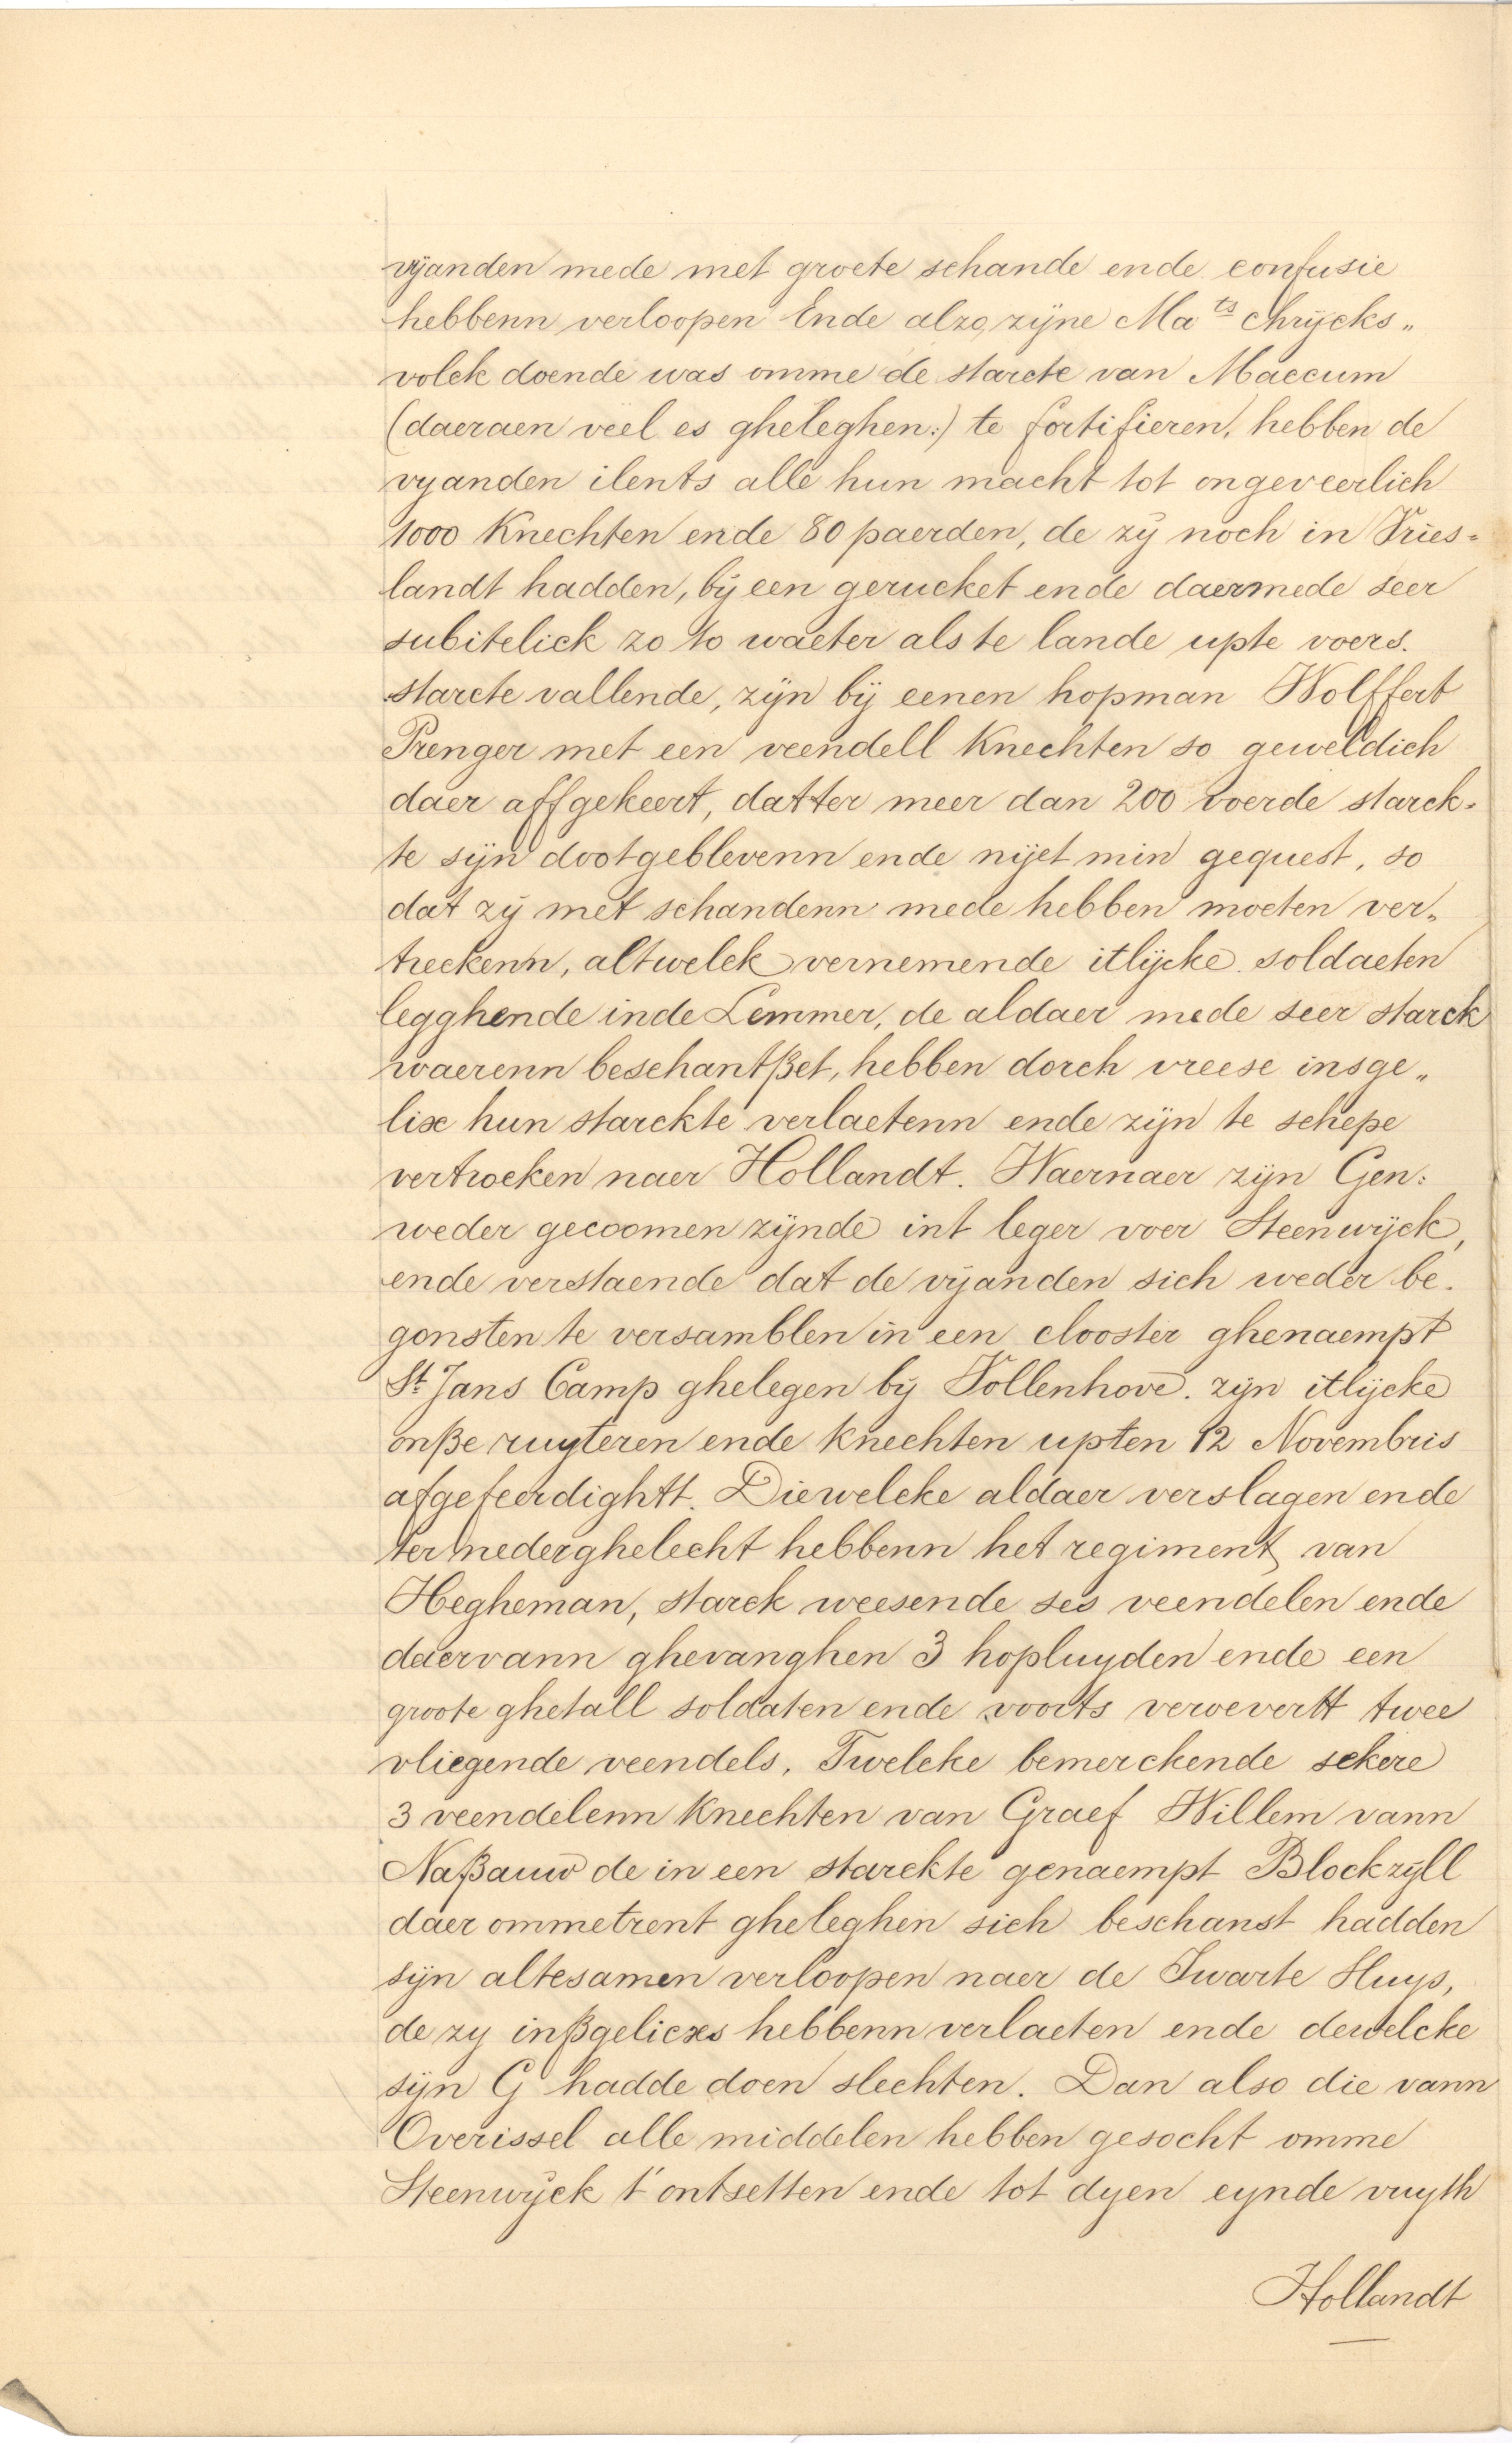 vijanden mede met groote schande ende confusie
hebbenn verloopen Ende alzo, zijne Ma ts chrijcks„
volck doende was omme de starcte van Maccum
(daeraen veel es gheleghen:) te fortifieren, hebben de
vyanden ilents alle hun macht tot ongeveerlich
1000 Knechten ende 80 paerden, de zij noch in Vries=
landt hadden, bij een gerucket ende daermede seer
subitelick zo to waeter als te lande upte voers.
starcte vallende, zijn bij eenen hopman Wolffert
Prenger met een veendell Knechten so geweldich
daer affgekeert, datter meer dan 200 voerde starck=
te sijn dootgeblevenn ende nijet min gequest, so
dat zij met schandenn mede hebben moeten ver„
treckenn, altwelck vernemende itlijcke soldaeten
legghende inde Lemmer, de aldaer mede seer starck
waerenn beschantßet, hebben dorch vreese insge„
lix hun starckte verlaetenn ende zijn te schepe
vertrocken naer Hollandt. Waernaer zijn Gen:
weder gecoomen zijnde int leger voer Steenwijck,
ende verstaende dat de vijanden sich weder be.
gonsten te versamblen in een clooster ghenaempt
St. Jans Camp ghelegen bij Vollenhove. zijn itlijcke
onße ruyteren ende knechten upten 12 Novembris
afgeteerdightt. Diewelcke aldaer verslagen ende
ter nederghelecht hebbenn het regiment van
Hegheman, starck weesende ses veendelen ende
daervann ghevanghen 3 hopluyden ende een
groote ghetall soldaten ende voorts veroevertt twee
vliegende veendels, Twelcke bemerckende sekere
3 veendelenn Knechten van Graef Willem vann
Naßauw de in een starckte genaempt Blockzijll
daer ommetrent gheleghen sich beschanst hadden
sijn altesamen verloopen naer de Swarte Sluys,
de zy inßgelicxs hebbenn verlaeten ende dewelcke
sijn G hadde doen slechten. Dan also die vann
Overissel alle middelen hebben gesocht omme
Steenwijck t'ontsetten ende tot dyen eynde vuyth
Hollandt